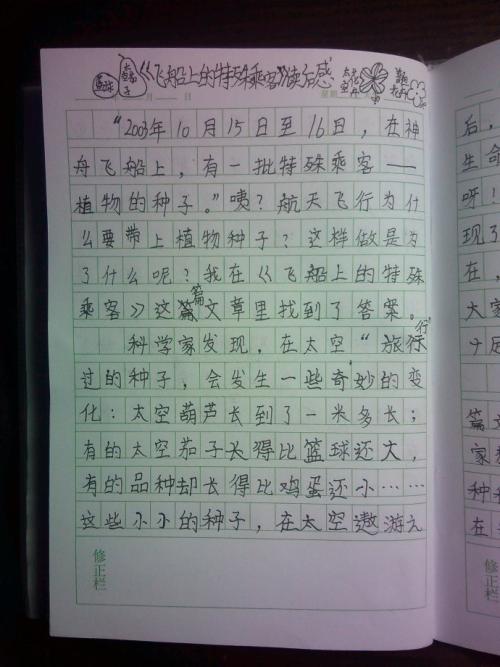 《飞船上的特殊乘客》读后感
年 月 日
星期
“2003年10月15日至16日，在神
舟飞船上，有一批特殊乘客——
植物的种子。”咦？航天飞行为什
么要带上植物种子？这样做是为
了什么呢？我在《飞船上的特殊
乘客》这篇文章里找到了答案。
科学家发现，在太空“旅行
过的种子，会发生一些奇妙的变
化：太空葫芦长到了一米多长；
有的太空茄子长得比篮球还大，
有的品种却长得比鸡蛋还小……
这些小小的种子，在太空遨游之
修正栏
后，
生命
呀！
现了
在，
大家
篇文
家
种
在
修正栏